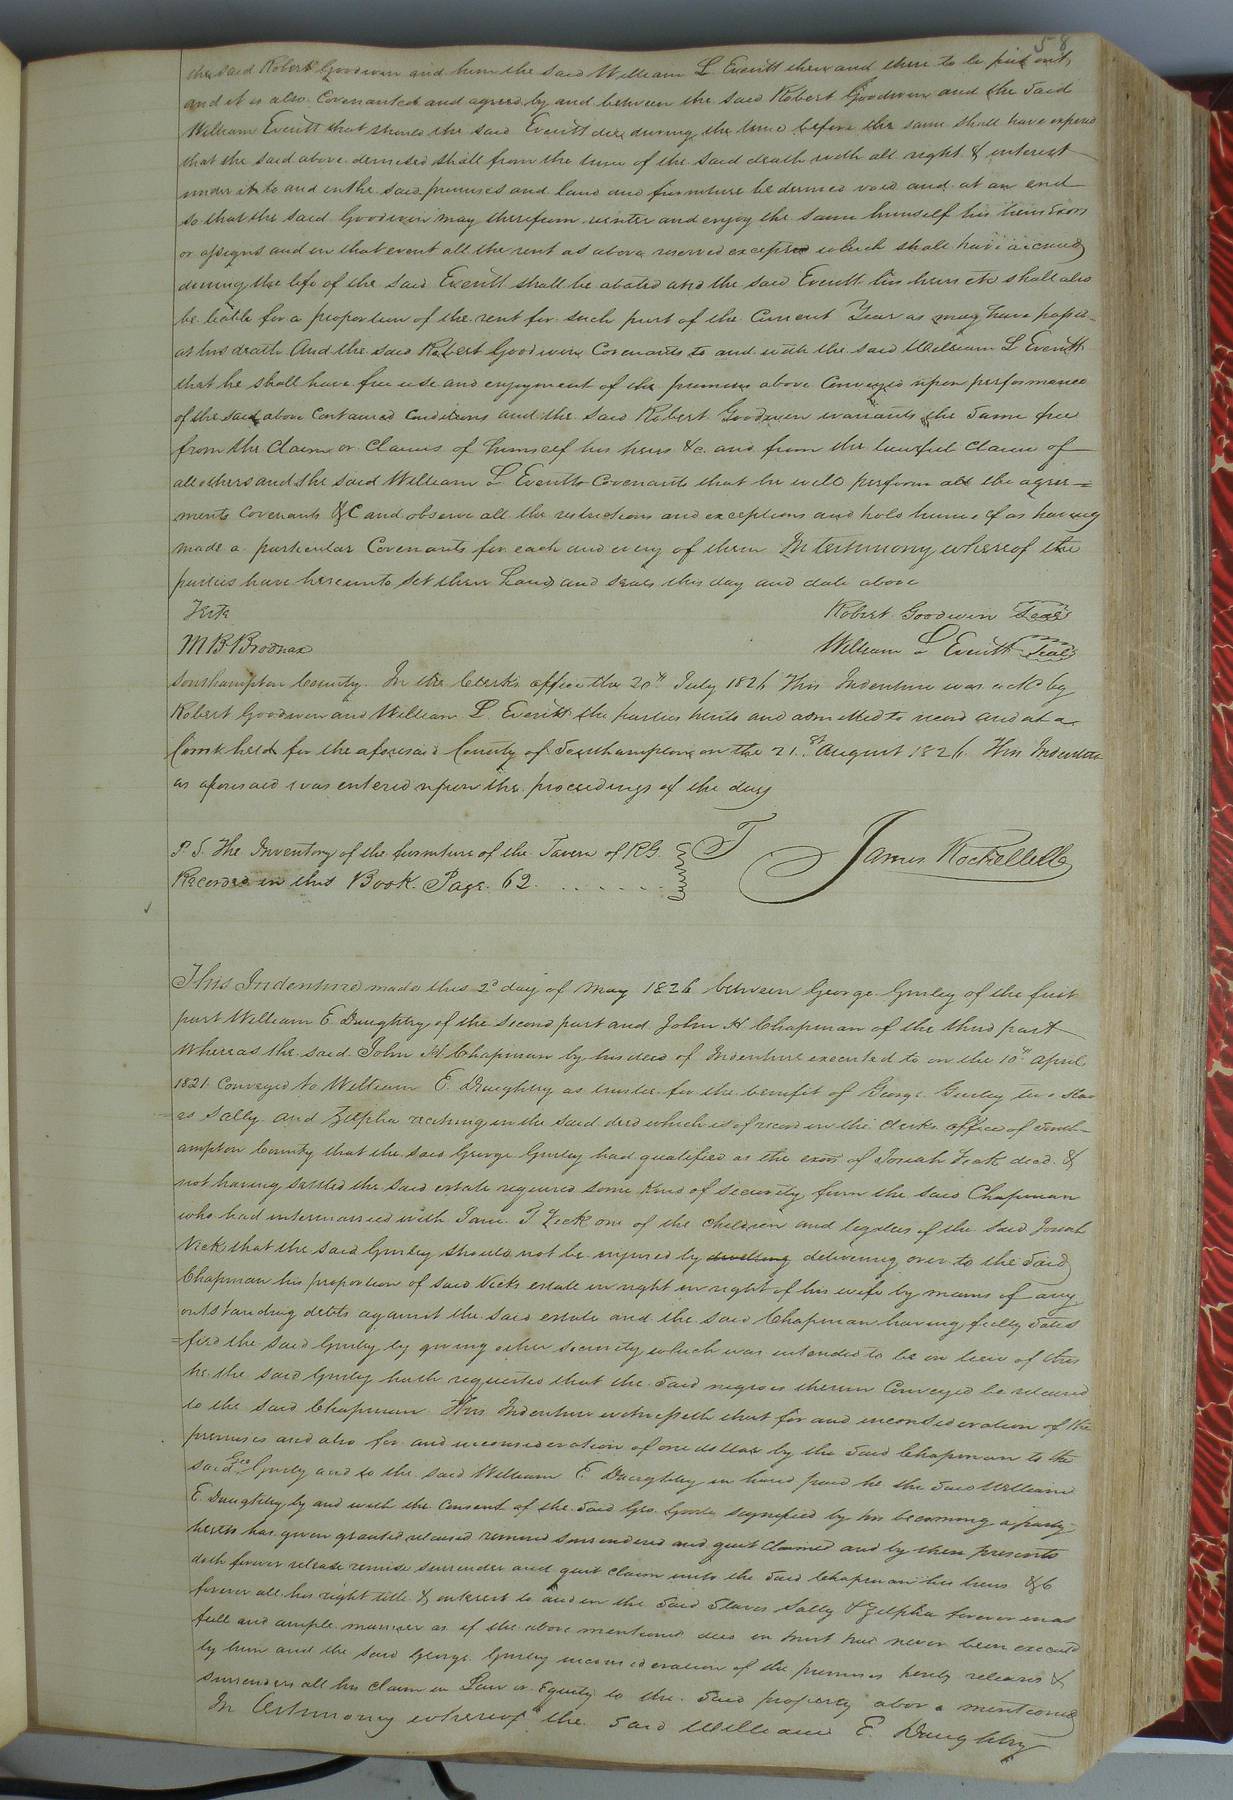 58
the said Robert Goodwin and him the said William L Everitt then and there to be put out,
and it is also Covenanted and agreed by and between the said Robert Goodwin and the said
William Everitt that should the said Everitt die during the time before the same shall have expired
that the said above demised shall from the time of the said death with all right & interest
under it to and in the said premises and land and furniture be deemed void and at an end
so that the said Goodwin may therefrom reinter and enjoy the same himself his heirs Exors
or assigns and in that event all the rent as above reserved except which shall have accrued
during the life of the said Everitt shall be abated and the said Everitt his heirs etc shall also
be liable for a proportion of the rent for such part of the Current Year as may have passed
at his death And the said Robert Goodwin Covenants to and with the said William L Everitt
that he shall have free use and enjoyment of the premises above Conveyed upon performance
of the said above Contained Conditions and the said Robert Goodwin warrants the same free
from the Claim or Claims of himself his heirs &c. and from the lawful Claim of
all others and the said William L Everitt Covenants that he will perform all the agree=
ments Covenants &C and observe all the restrictions and exceptions and hold himself as having
made a particular Covenants for each and every of them In testimony whereof the
parties have hereunto set their Hands and seals this day and date above
Teste
Robert Goodwin Seal
M B Brodnax
William L Everitt Seal
Southampton County. In the Clerk's office the 20th July 1826 This Indenture was ackd by
Robert Goodwin and William L Everitt the parties hereto and admitted to record and at a
Court held for the aforesaid County of Southampton on the 21.st August 1826. This Indenture
as aforesaid was entered upon the proceedings of the day
P. S. The Inventory of the furniture of the Tavern of RG.
Recorded in this Book. Page. 62. . . . . . .
T James Rochelle Ck
This Indenture made this 2d day of May 1826 between George Gurley of the first
part William E Daughtry of the second part and John H Chapman of the third part
Whereas the said John H Chapman by his deed of Indenture executed to on the 10th April
1821 Conveyed to William E. Daughtry as trustee for the benefit of George Gurley two slav
es Sally and Zilpha reciting in the said deed which is of record in the Clerks office of South=
ampton County that the said George Gurley had qualified as the exor of Josiah Vick decd. &
not having settled the said estate required some kind of security from the said Chapman
who had intermarried with Jane T Vick one of the children and legatees of the said Josiah
Vick that the said Gurley should not be injured by dwelling delivering over to the said
Chapman his proportion of said Vicks estate in right in right of his wife by means of any
outstanding debts against the said estate and the said Chapman having fully satis
=fied the said Gurley by giving other security which was intended to be in lieu of this
he the said Gurley hath requested that the said negroes therein Conveyed be released
to the said Chapman. This Indenture witnesseth that for and inconsideration of the
premises and also for and inconsideration of one dollar by the said Chapman to the
said Geo Gurley and to the said William E Daughtry in hand paid he the said William
E. Daughtry by and with the Consent of the said Geo. Gurley signified by his becoming a party
hereto has given granted released remised surrendered and quit Claimed and by these presents
doth forever release remise surrender and quit claim unto the said Chapman his heirs &c
forever all his right title & interest to and in the said slaves Sally & Zilpha forever in as
full and ample manner as if the above mentioned deed in trust had never been executed
by him and the said George Gurley inconsideration of the premises hereby releases &
surrenders all his Claim in Law or Equity to the said property above mentioned
In testimony whereof the said William E. Daughtry